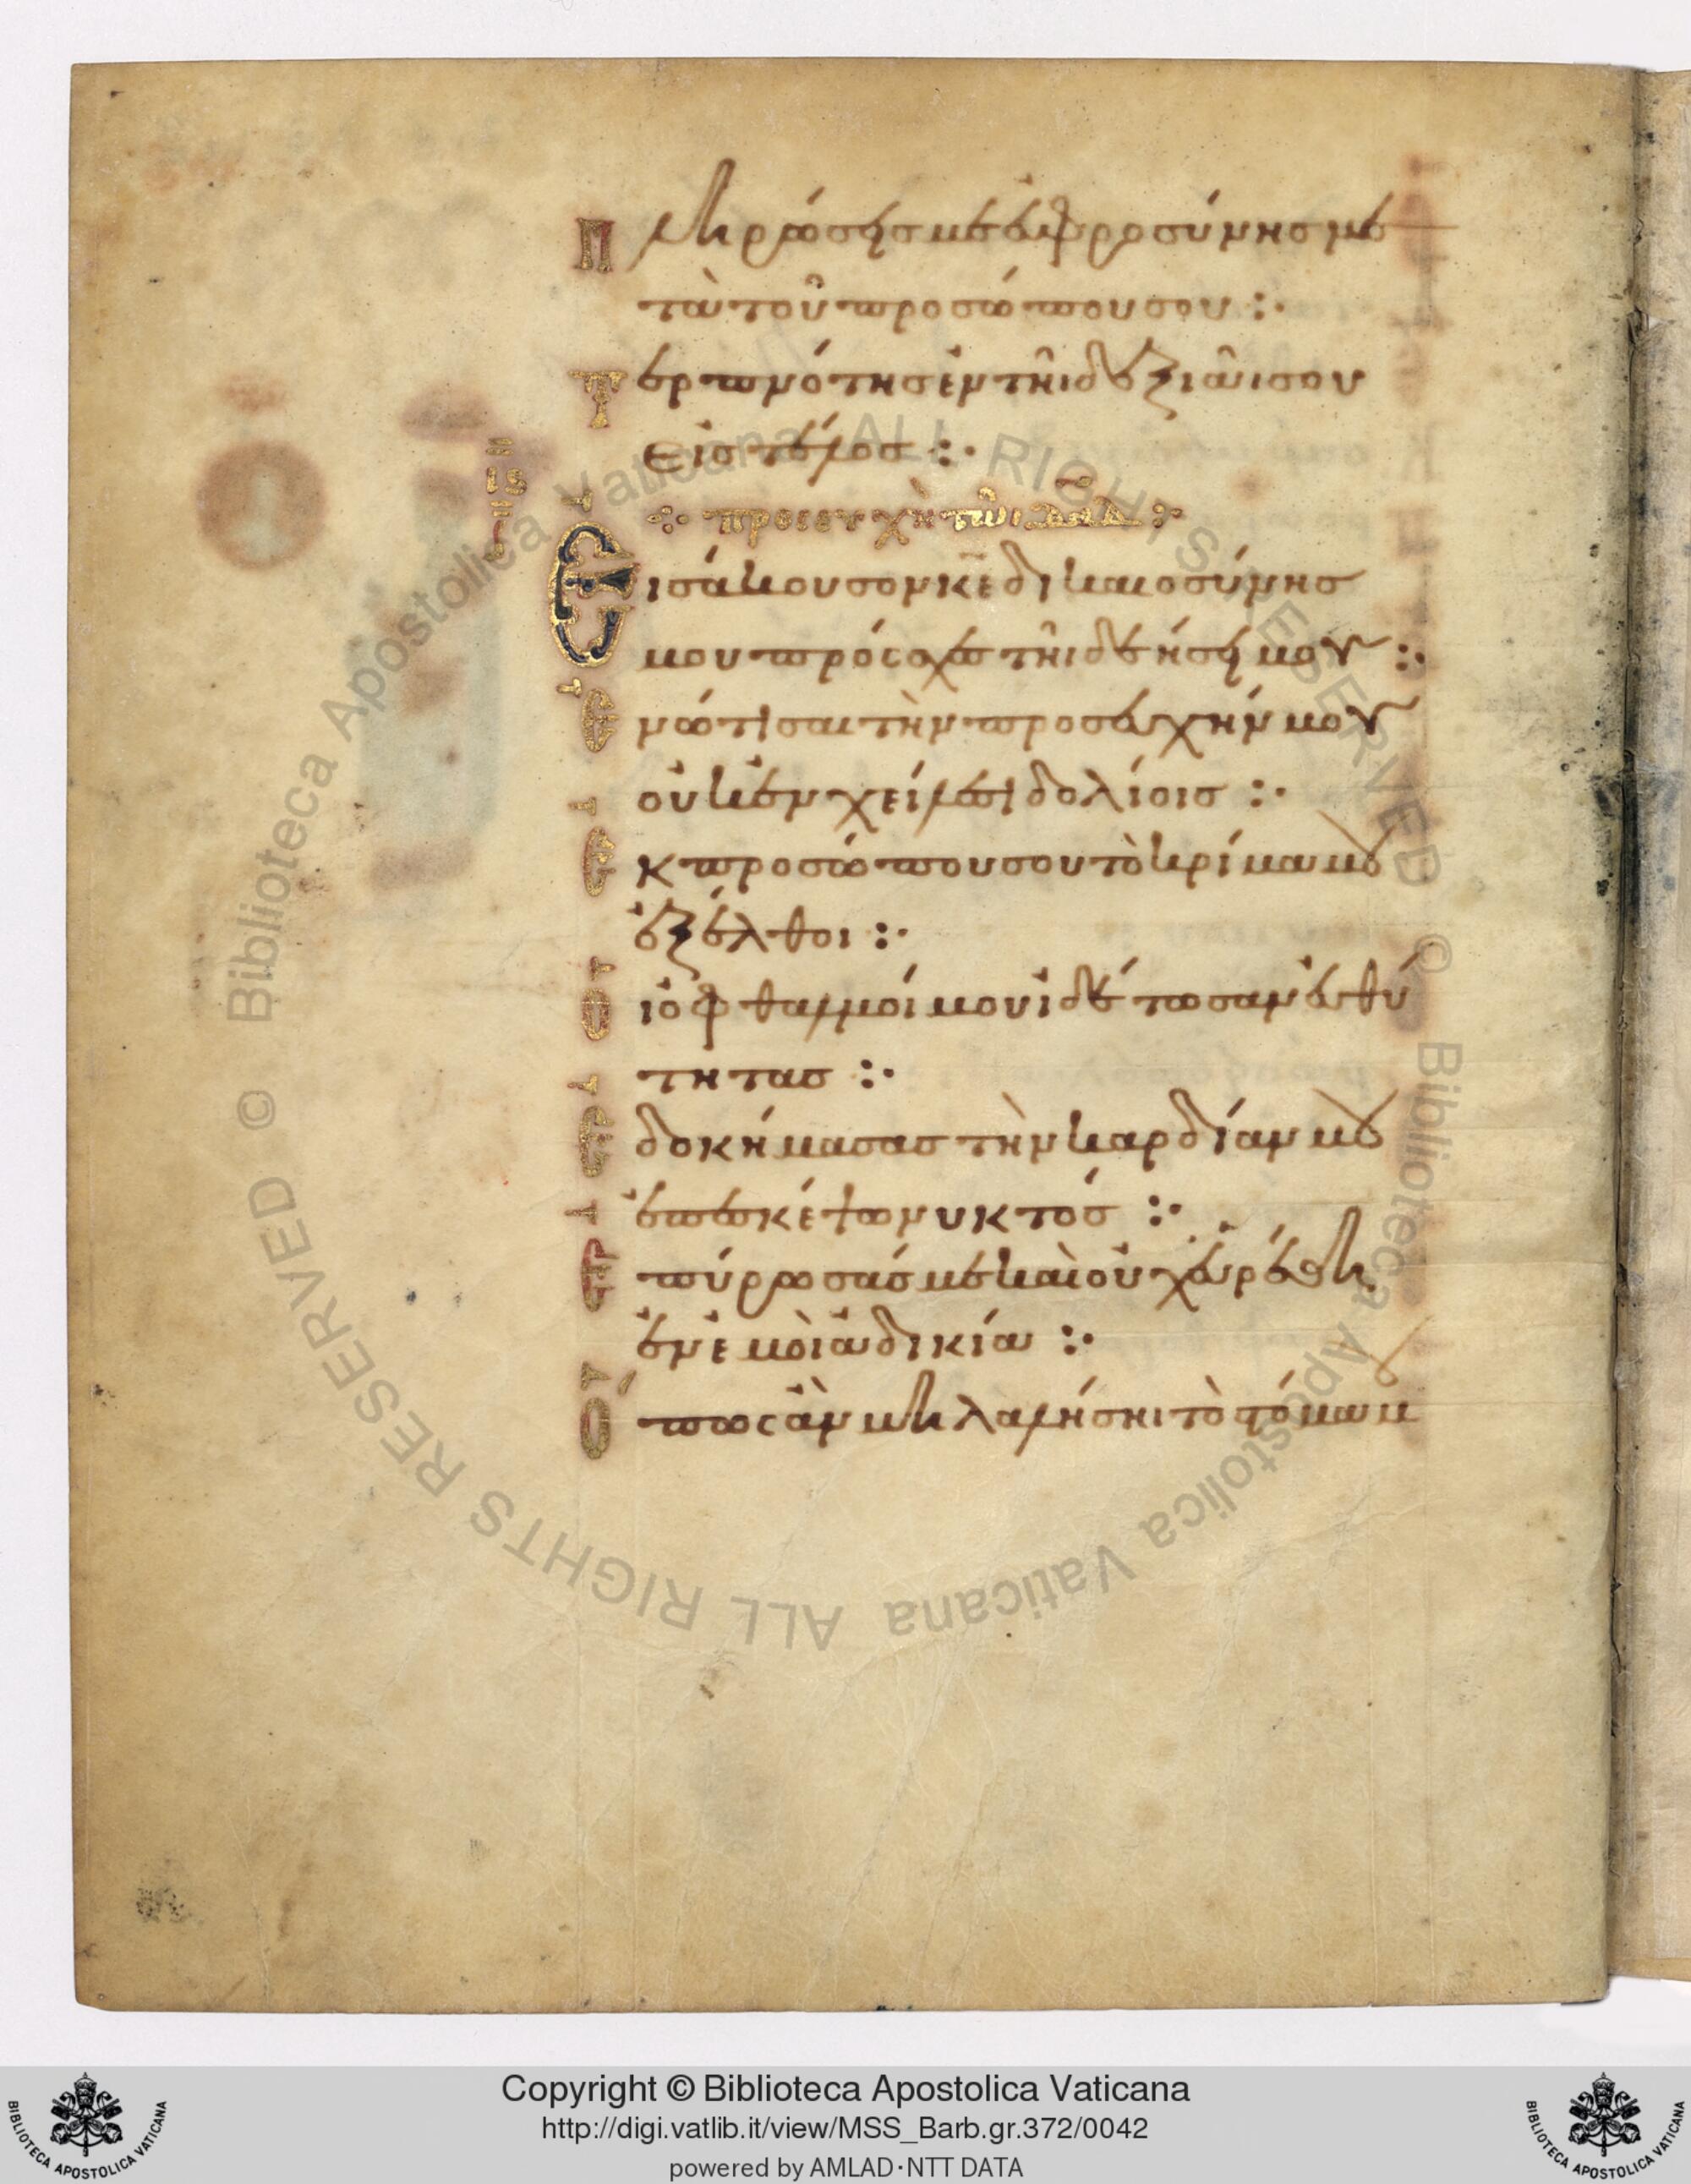 Πληρώσεις με εὐφροσύνης με
τὰ τοῦ προσώπου σου :·
Τερπνότης ἐν τῆι δεξιᾶι σου
εἰς τέλος :·
ιϛ
προσευχὴ τῶι δαδ :·
Εἰσάκουσον κε δικαιοσύνης
μου πρόσχες τῆι δεήσει μου :·
Ἐνώτισαι τὴν προσευχήν μου
οὐκ ἐν χείλεσι δολίοις :·
Ἐκ προσώπου σου τὸ κρίμα μου
ἐξέλθοι :·
Οἱ ὀφθαλμοί μου ἰδέτωσαν εὐθύ
τητας :·
Ἐδοκήμασας τὴν καρδίαν μου
ἐπεσκέψω νυκτός :·
Ἐπύρωσάς με καὶ οὐχ εὑρέθη
ἐν ἐμοὶ ἀδικία :·
Ὅπως ἂν μὴ λαλήσηι τὸ στόμα μου
Copyright © Biblioteca Apostolica Vaticana
http://digi.vatlib.it/view/MSS_Barb.gr.372/0042
powered by AMLAD·NTT DATA
© Biblioteca Apostolica Vaticana ALL RIGHTS RESERVED © Biblioteca Apostolica Vaticana ALL RIGHTS RESERVED
BIBLIOTECA APOSTOLICA VATICANA
BIBLIOTECA APOSTOLICA VATICANA